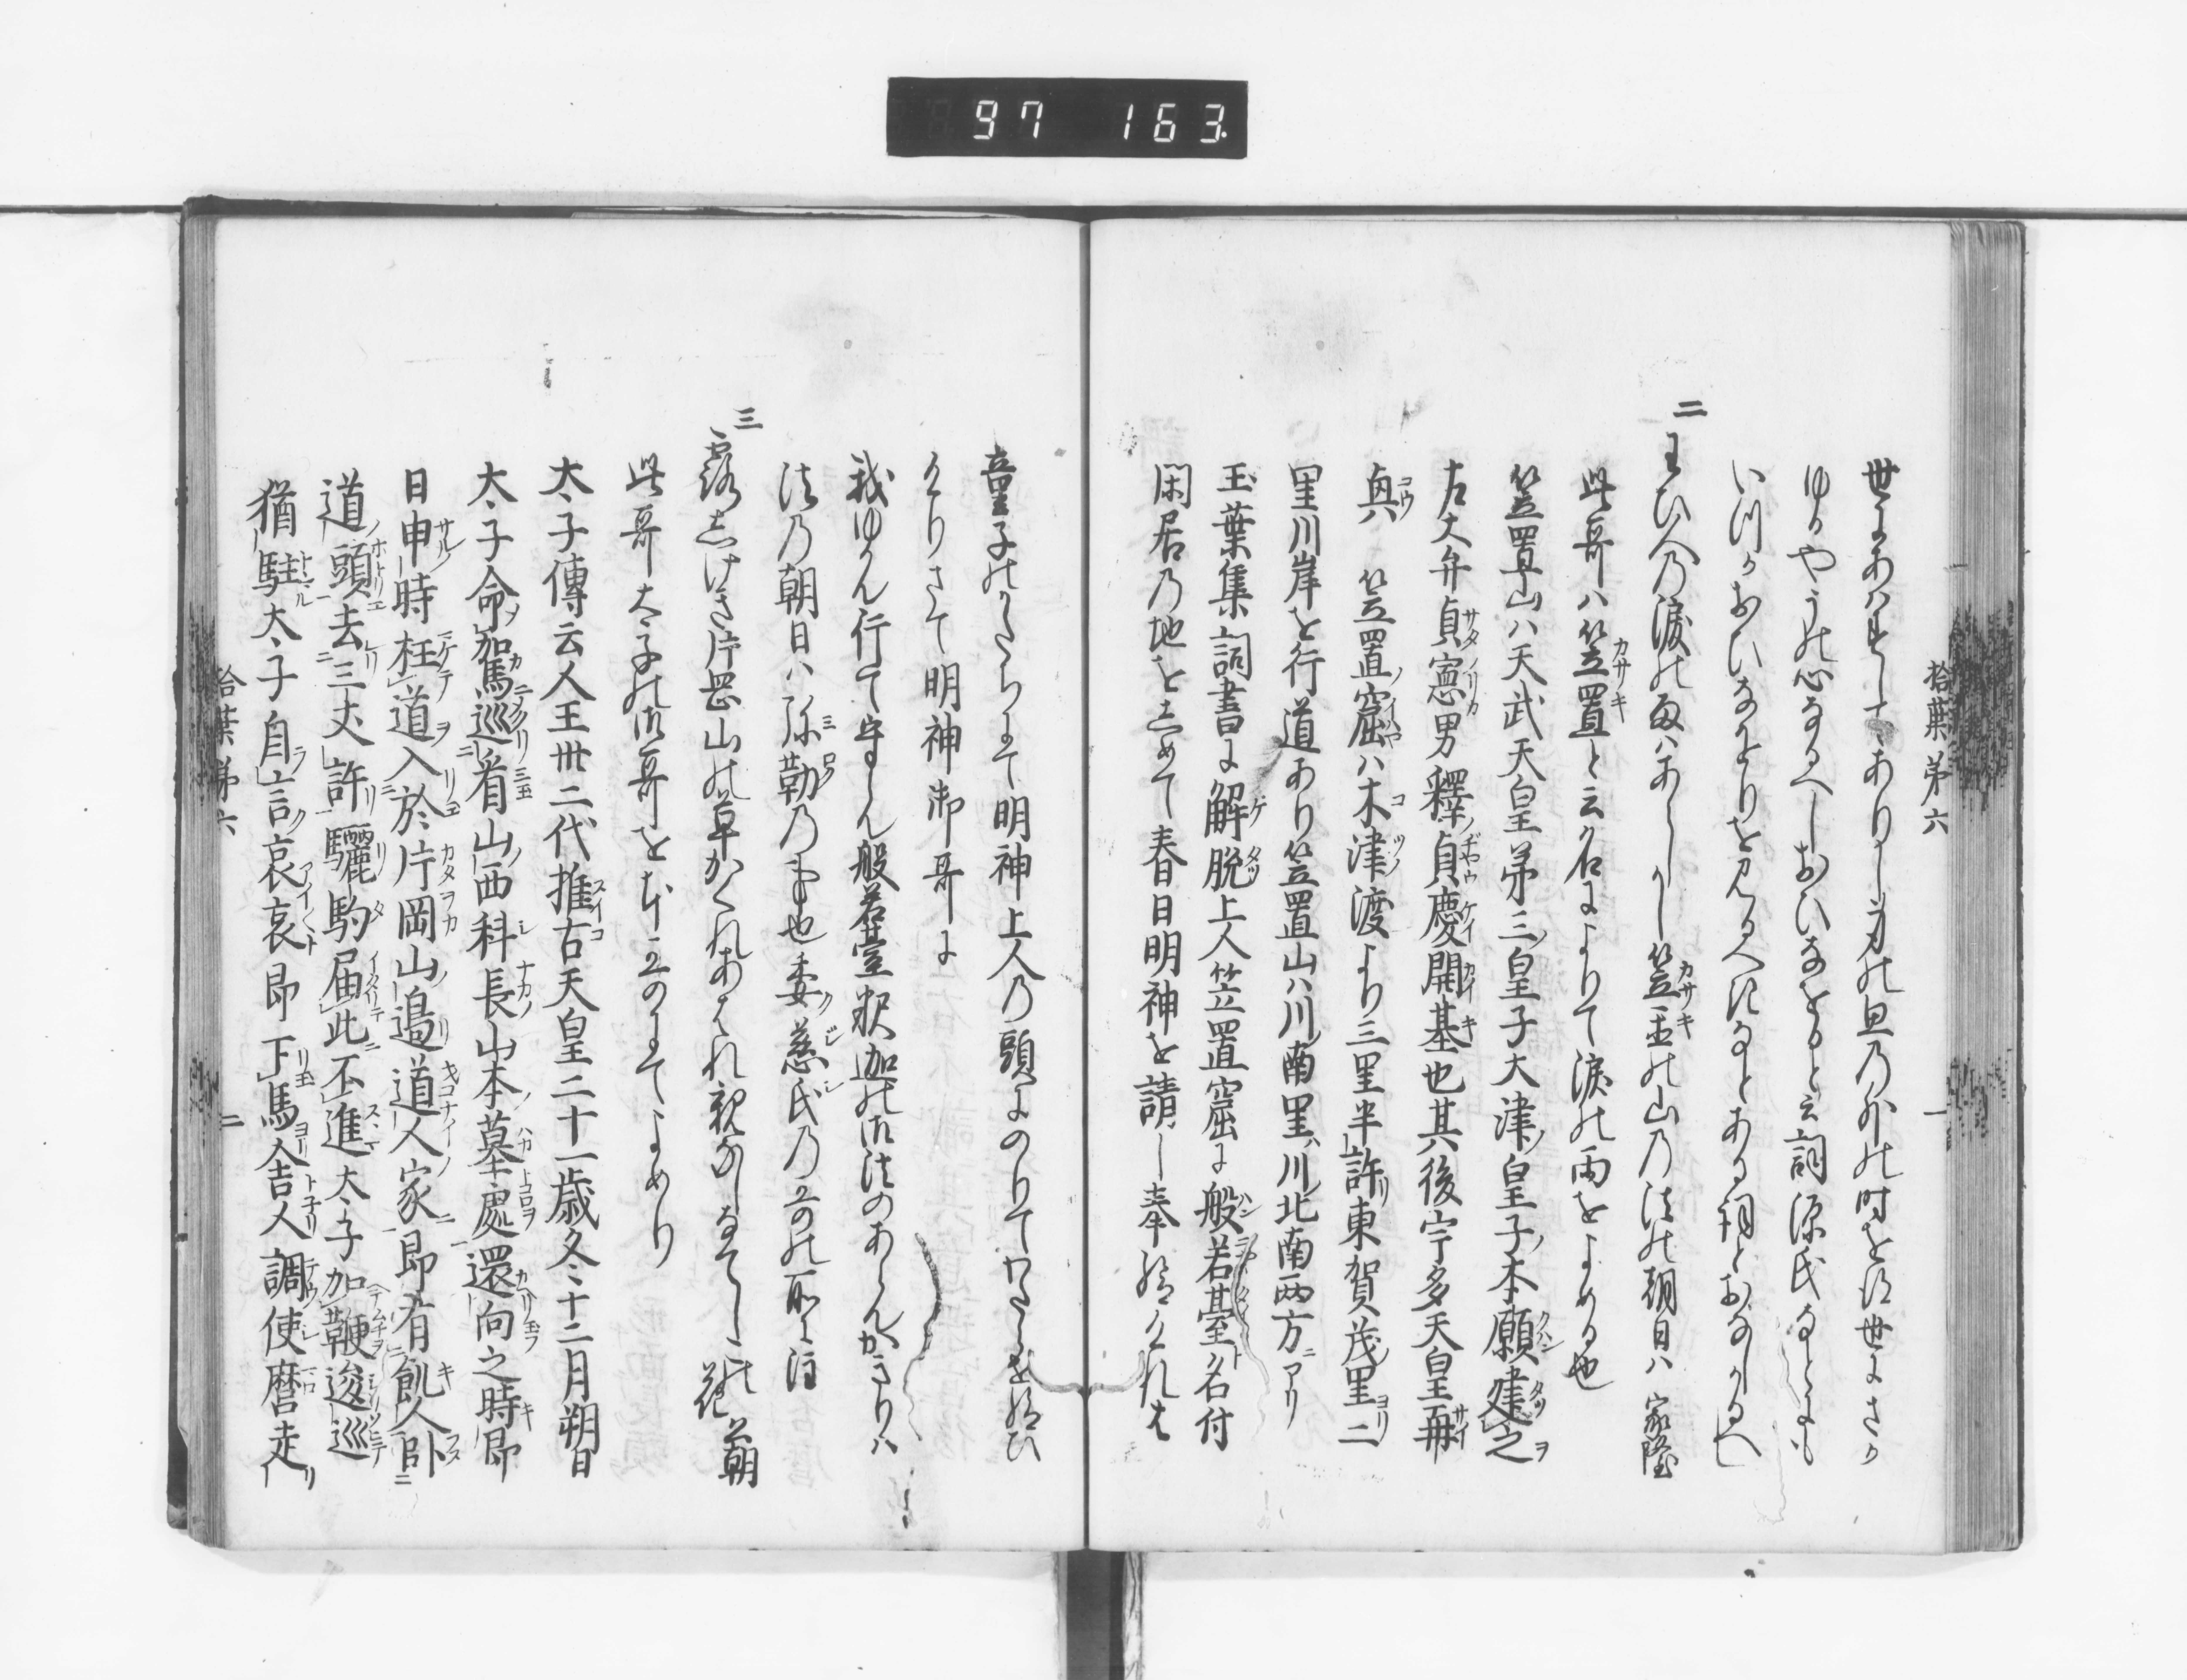 97 163
拾葉第六 一
世にあはすしてありし身の思乃外の時を得世にさか
ゆるやうの心なるへしおひなをると云詞源氏なとにも
いつかおひなをりを見るへきなとある詞とおなしかるへし
二 まひ人乃涙の雨はあらし笠置の山乃法の朝日ハ 家隆
此哥ハ笠置と云名によりて涙の雨をよめる也
笠置山ハ天武天皇第三皇子大津皇子本願建之
左大弁貞憲男釋貞慶開基也其後宇多天皇再
興 笠置窟ハ木津渡より三里半許東賀茂里ヨリ二
里川岸を行道あり笠置山ハ川南里ハ川北南両方ニアリ
玉葉集詞書に解脱上人笠置窟に般若臺ト名付
閑居乃地をしめて春日明神を請し奉給けれは
童子のかたちにて明神上人乃頭にのりてわたらせ給ひ
けりさて明神御哥に
我ゆかん行て守らん般若臺釈迦の御法のあらんかきりハ
法乃朝日ハ弥勒乃事也委慈氏乃哥の所に注
三 露しけき片岡山の草かくれあはれ親なしなてしこの花 蓮朝
此哥太子の御哥を本哥のにてよめり
太子傳云人王卅二代推古天皇二十一歳冬十二月朔日
太子命駕巡看山西科長山本墓處還向之時即
日申時枉道入於片岡山邊道人家即有飢人臥
道頭去三丈許驪駒届此不進太子加鞭逡巡
猶駐太子自言哀哀即下馬舎人調使麿走
拾葉第六 二